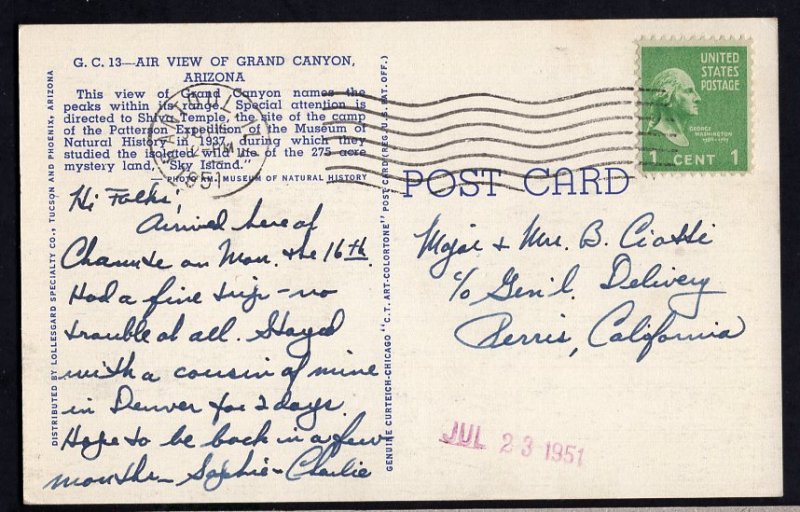 G. C. 13—AIR VIEW OF GRAND CANYON,
ARIZONA
This view of Grand Canyon names the
peaks within its range. Special attention is
directed to Shiva Temple, the site of the camp
of the Patterson Expedition of the Museum of
Natural History in 1937, during which they
studied the isolated wild life of the 275 acre
mystery land, "Sky Island."
—PHOTO AM. MUSEUM OF NATURAL HISTORY
Hi Folks,
Arrived here at
Chanute on Mon. the 16th.
Had a fine trip - no
trouble at all. Stayed
with a cousin of mine
in Denver for 2 days.
Hope to be back in a few
months - Sophie - Charlie
DISTRIBUTED BY LOLLESGARD SPECIALTY CO., TUCSON AND PHOENIX, ARIZONA
GENUINE CURTEICH-CHICAGO "C.T. ART-COLORTONE" POST CARD (REG. U.S. PAT. OFF.)
1951
UNITED
STATES
POSTAGE
GEORGE
WASHINGTON
1 CENT 1
POST CARD
Major & Mrs. B. Ciotti
c/o Gen'l. Delivery
Perris, California
JUL 23 1951